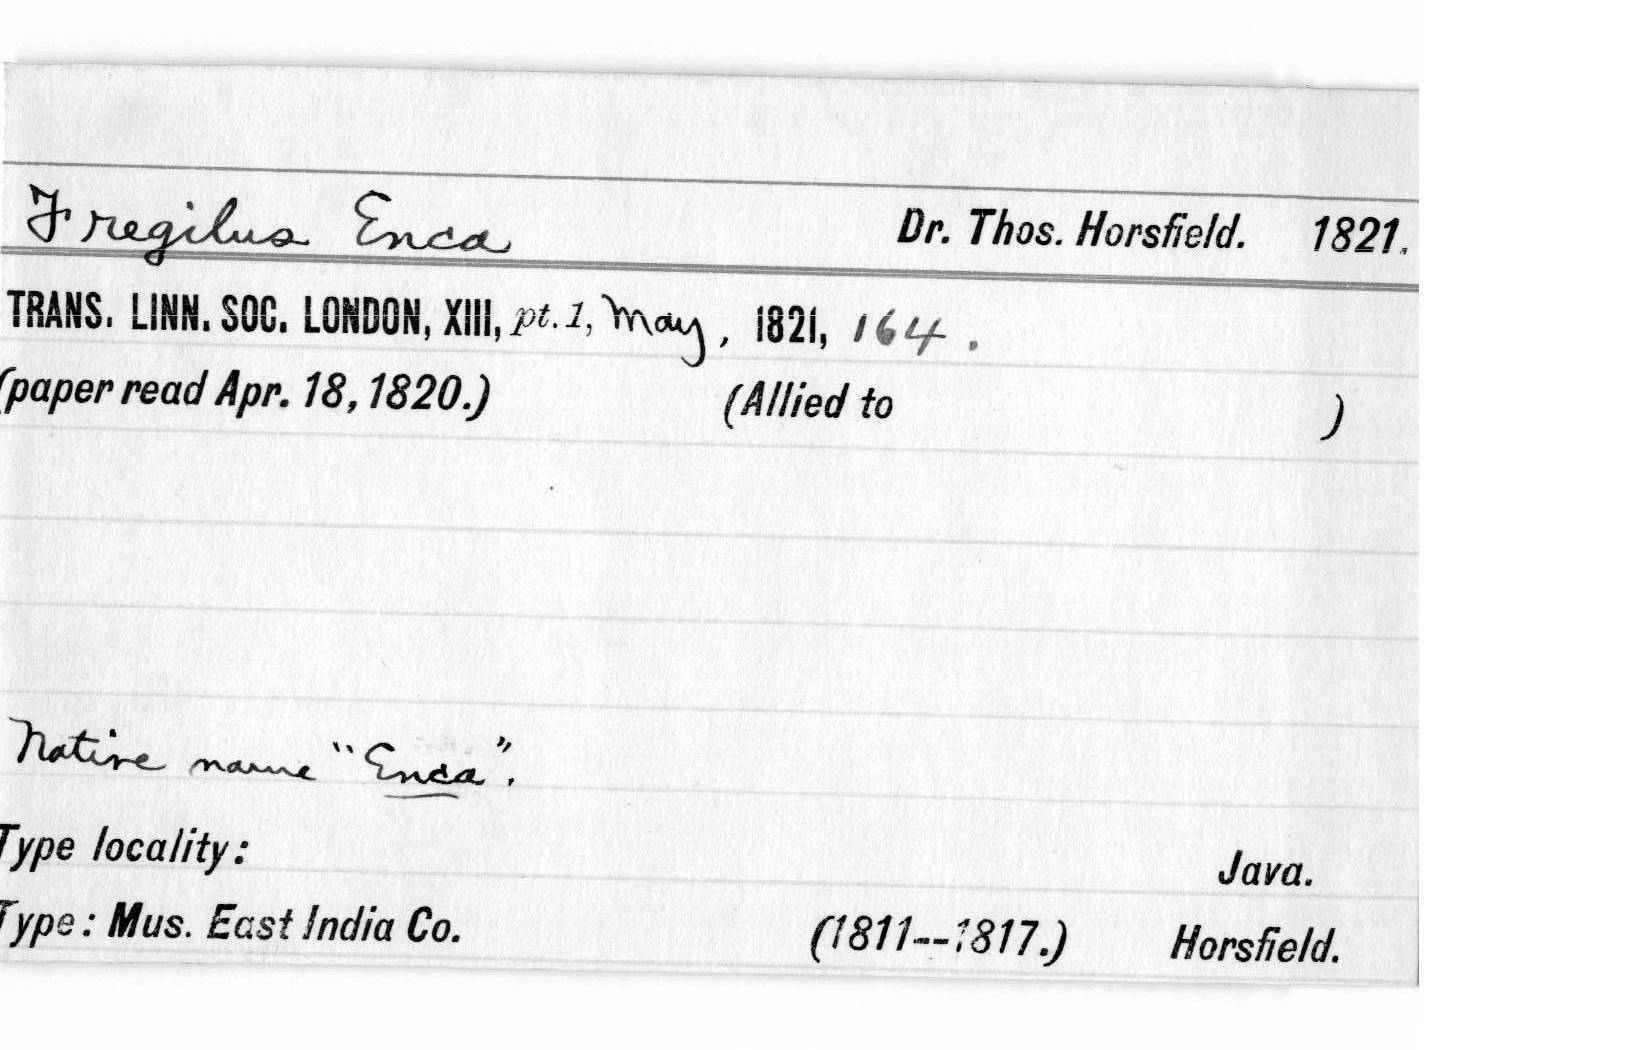 Fregilus Enca Dr. Thos. Horsfield. 1821.
TRANS. LINN. SOC. LONDON, XIII, pt. 1, May, 1821, 164.
(paper read Apr. 18, 1820.) (Allied to )
Native name "Enca".
Type locality: Java.
Type: Mus. East India Co. (1811--1817.) Horsfield.